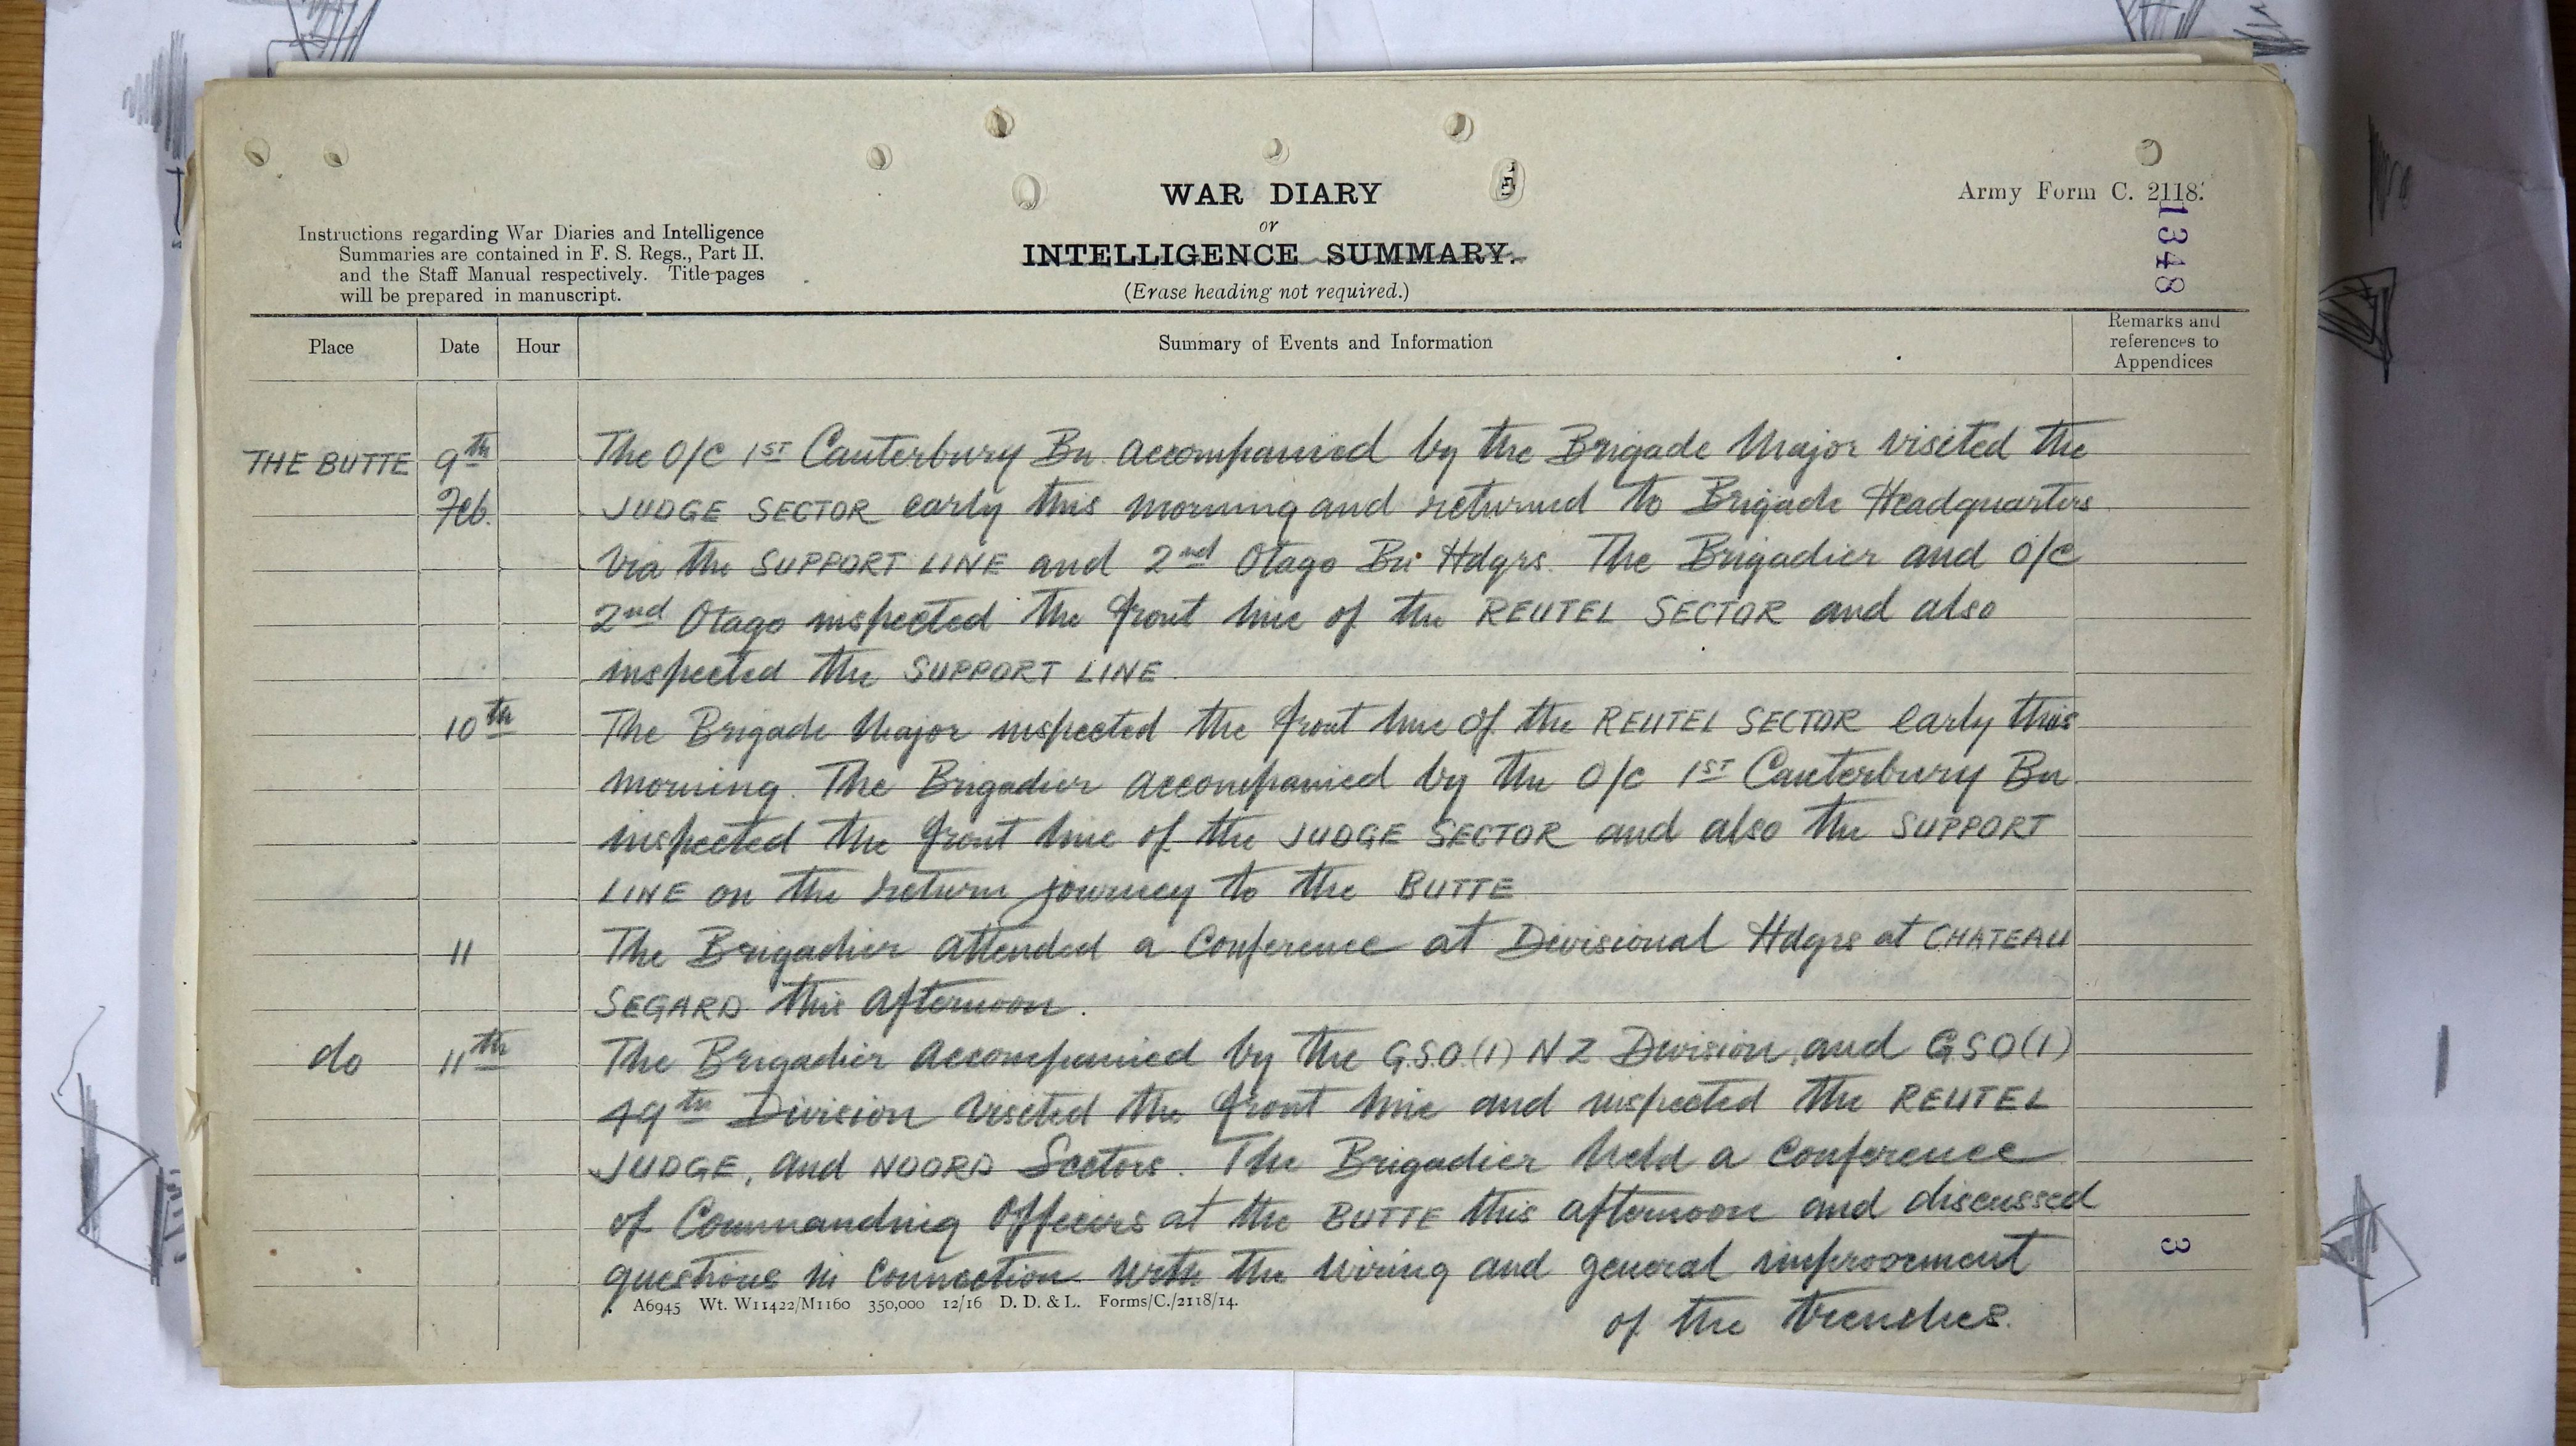 WAR DIARY
or
INTELLIGENCE SUMMARY.
(Erase heading not required.)
Army Form C. 2118.
1348
Instructions regarding War Diaries and Intelligence
Summaries are contained in F. S. Regs., Part II.
and the Staff Manual respectively. Title pages
will be prepared in manuscript.
Place Date Hour Summary of Events and Information Remarks and references to Appendices
THE BUTTE 9th The O/C 1ST Canterbury Bn accompanied by the Brigade Major visited the
Feb. JUDGE SECTOR early this morning and returned to Brigade Headquarters
via the SUPPORT LINE and 2nd Otago Bn Hdqrs. The Brigadier and O/C
2nd Otago inspected the front line of the REUTEL SECTOR and also
inspected the SUPPORT LINE.
10th The Brigade Major inspected the front line of the REUTEL SECTOR early this
morning. The Brigadier accompanied by the O/C 1ST Canterbury Bn
inspected the front line of the JUDGE SECTOR and also the SUPPORT
LINE on the return journey to the BUTTE
11 The Brigadier attended a Conference at Divisional Hdqrs at CHATEAU
SEGARD this afternoon.
do 11th The Brigadier accompanied by the G.S.O.(1) N Z Division, and G.S.O(1)
49th Division visited the front line and inspected the REUTEL
JUDGE, and NOORD Sectors. The Brigadier held a conference
of Commanding Officers at the BUTTE this afternoon and discussed
questions in connection with the wiring and general improvement
of the trenches.
3
A6945 Wt. W11422/M1160 350,000 12/16 D. D. & L. Forms/C./2118/14.